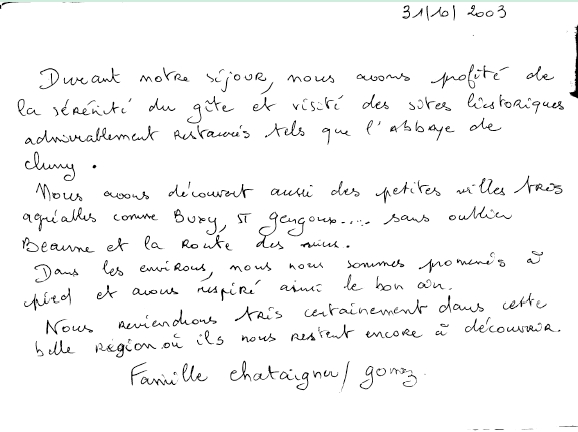 31/10/2003
Durant notre séjour, nous avons profité de
la sérénité du gîte et visité des sites historiques
admirablement restaurés tels que l'Abbaye de
cluny.
Nous avons découvert aussi des petites villes très
agréables comme Buxy, St Gengoux.... sans oublier
Beaune et la Route des vins.
Dans les environs, nous nous sommes promenés à
pied et avons respiré ainsi le bon air.
Nous reviendrons très certainement dans cette
belle région où ils nous restent encore à découvrir.
Famille chataigner/